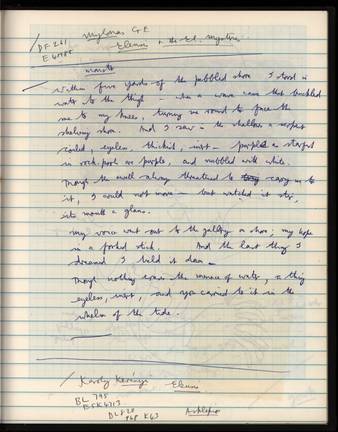 Mylonas G.E
DF 261
Eleusis & the El. mysteries
E 4
Within five yards of the pebbled shore I stood in
water to the thigh – then a wave came that buckled
me to my knees, turning me round to face the
shelving shore. And I saw in the shallows a serpent
coiled, eyeless, thickish, inert – purple as starfish
in rock-pools are purple, and nubbled with white.
Though the swell always threatened to carry me to
it, I could not move – but watched it step,
its mouth a glans.
My voice went out to the gallery on shore; my hope
in a forked stick. And the last thing I
dreamed I held it down –
Though nothing the menace of water, a thing
eyeless, inert, and you carried to it in the
whelm of the tide.
Karoly Kerényi Eleusis
BL 795
DL820
K43
Asklepios